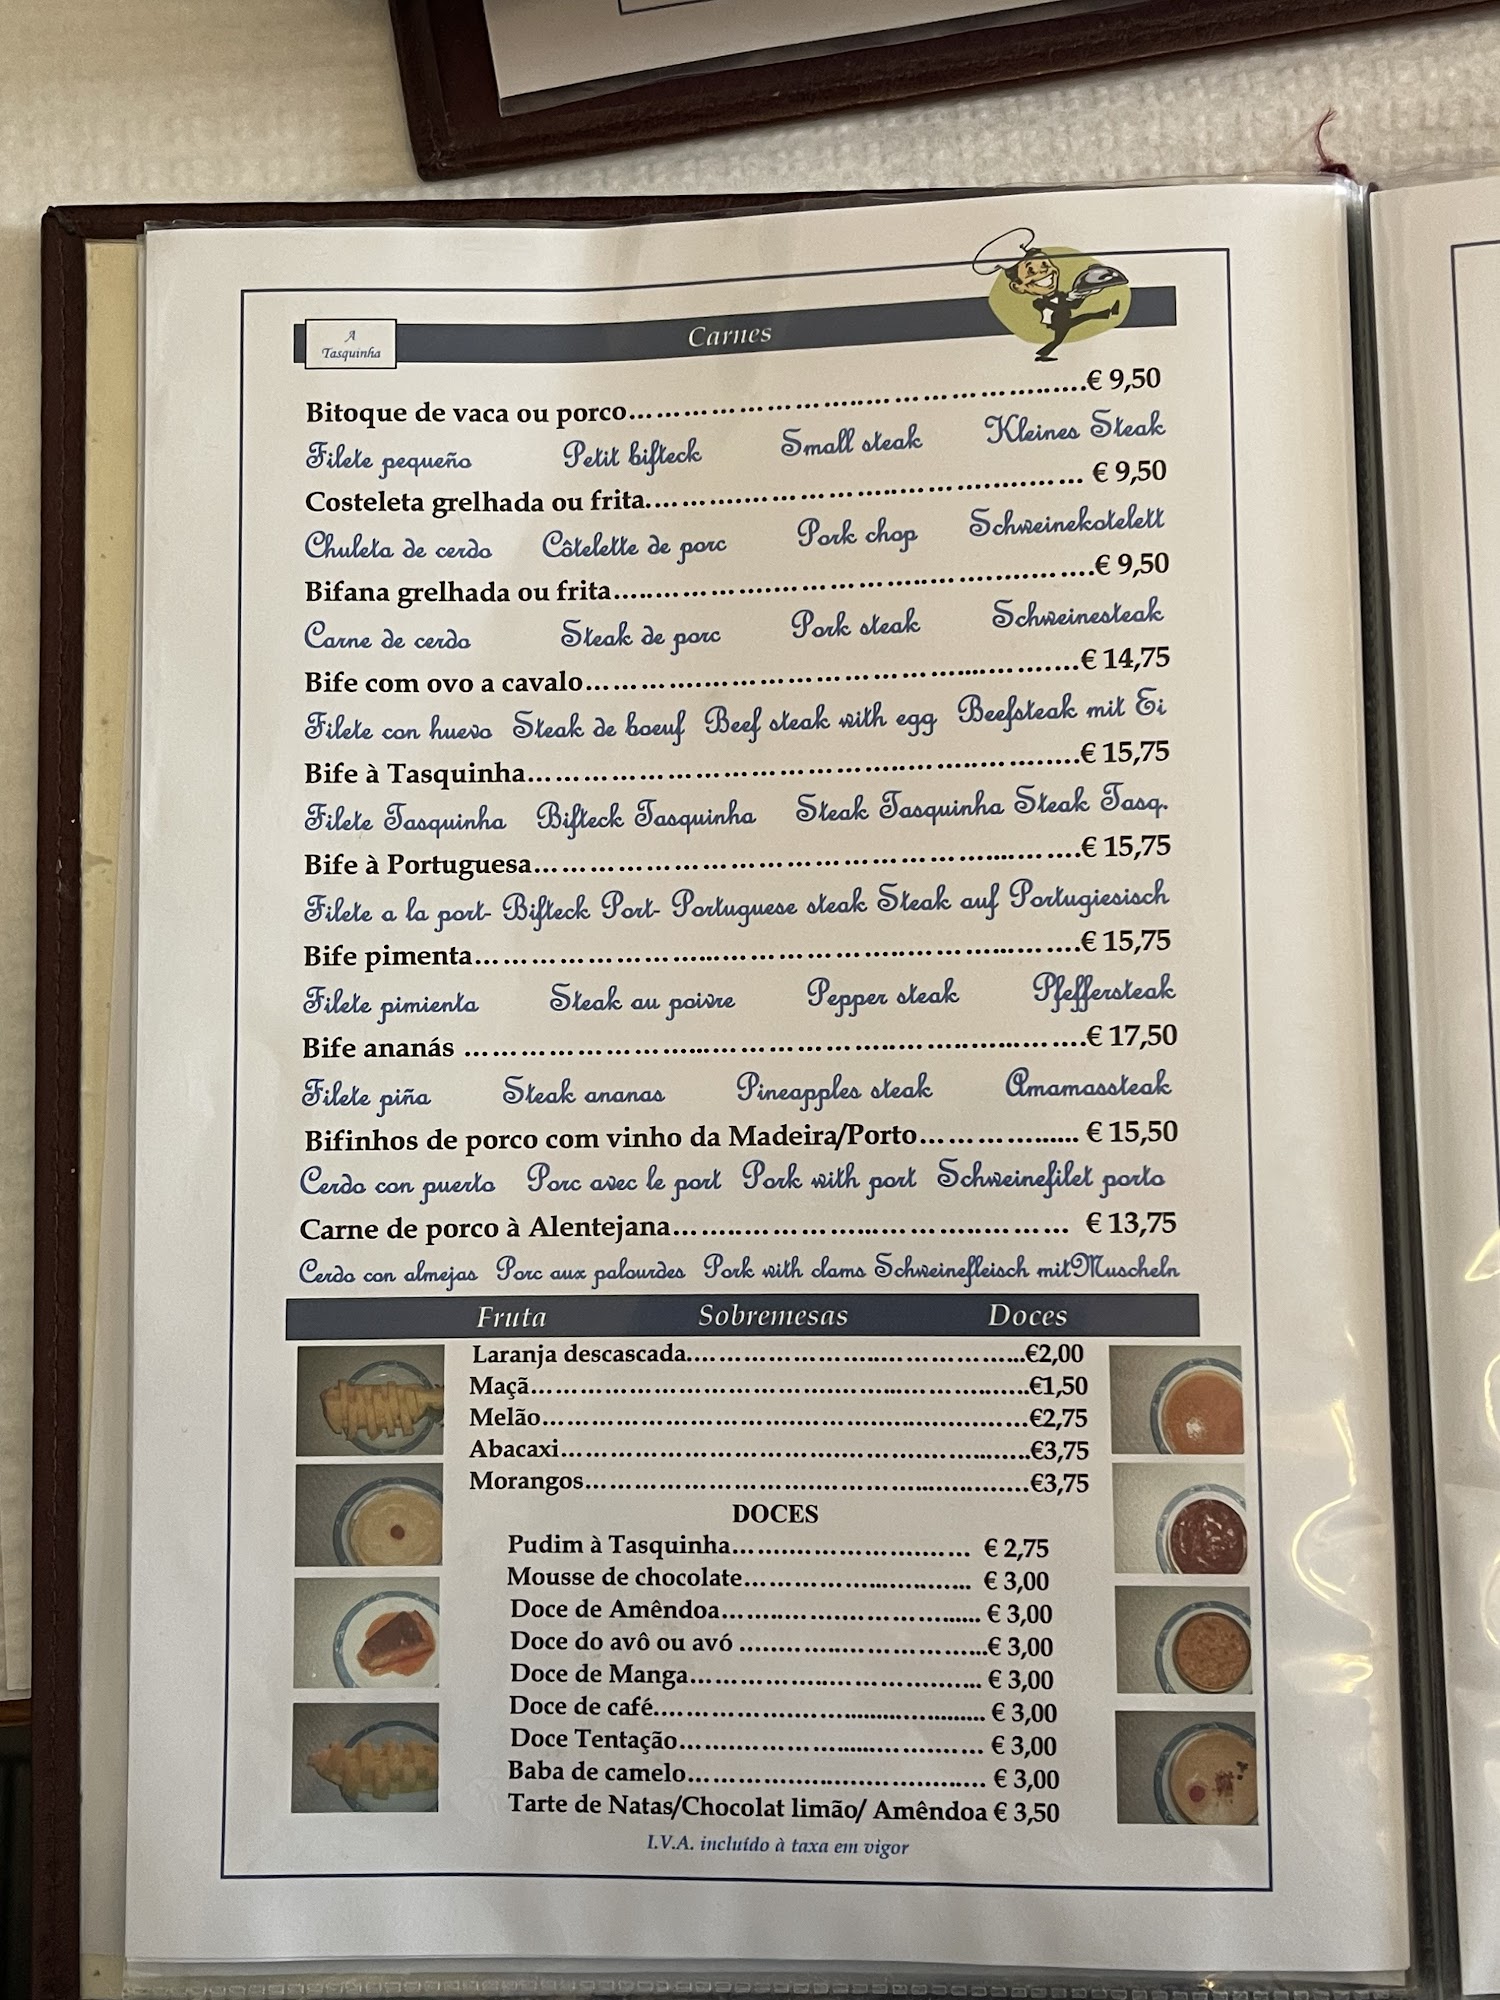 A
Tasquinha
Carnes
Bitoque de vaca ou porco................€ 9,50
Filete pequeño Petit bifteck Small steak Kleines Steak
Costeleta grelhada ou frita................€ 9,50
Chuleta de cerdo Côtelette de porc Pork chop Schweinekotelett
Bifana grelhada ou frita................€ 9,50
Carne de cerdo Steak de porc Pork steak Schweinesteak
Bife com ovo a cavalo................€ 14,75
Filete con huevo Steak de boeuf Beef steak with egg Beefsteak mit Ei
Bife à Tasquinha................€ 15,75
Filete Tasquinha Bifteck Tasquinha Steak Tasquinha Steak Tasq.
Bife à Portuguesa................€ 15,75
Filete a la port- Bifteck Port- Portuguese steak Steak auf Portugiesisch
Bife pimenta................€ 15,75
Filete pimienta Steak au poivre Pepper steak Pfeffersteak
Bife ananás ................€ 17,50
Filete piña Steak ananas Pineapples steak Amamassteak
Bifinhos de porco com vinho da Madeira/Porto................ € 15,50
Cerdo con puerto Porc avec le port Pork with port Schweinefilet porto
Carne de porco à Alentejana................ € 13,75
Cerdo con almejas Porc aux palourdes Pork with clams Schweinefleisch mit Muscheln
Fruta Sobremesas Doces
Laranja descascada................€2,00
Maçã................€1,50
Melão................€2,75
Abacaxi................€3,75
Morangos................€3,75
DOCES
Pudim à Tasquinha................ € 2,75
Mousse de chocolate................ € 3,00
Doce de Amêndoa................ € 3,00
Doce do avô ou avó ................€ 3,00
Doce de Manga................ € 3,00
Doce de café................ € 3,00
Doce Tentação................ € 3,00
Baba de camelo................ € 3,00
Tarte de Natas/Chocolat limão/ Amêndoa € 3,50
I.V.A. incluído à taxa em vigor